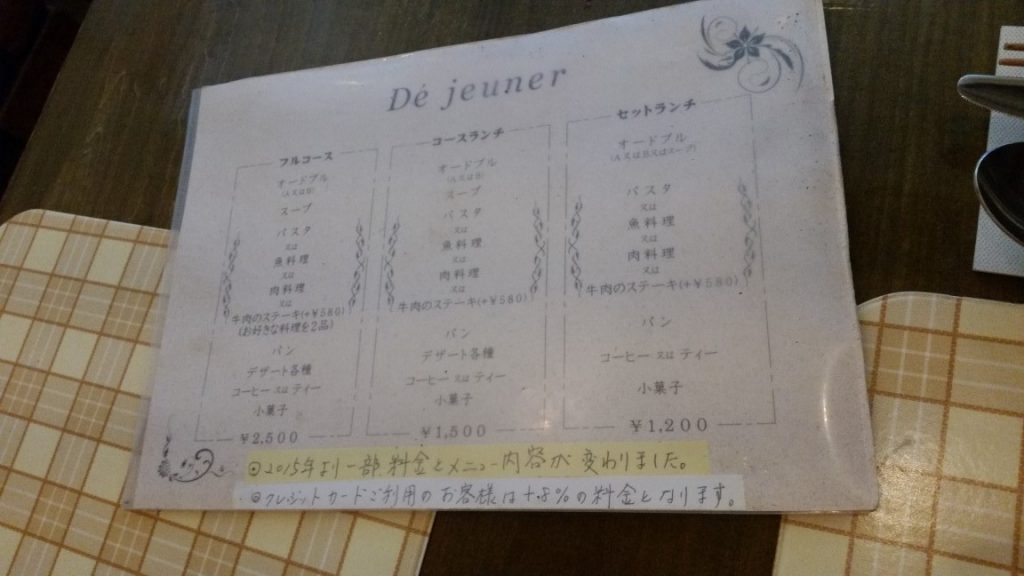 Dé jeuner
フルコース
オードブル
(A又はB)
スープ
パスタ
又は
魚料理
又は
肉料理
又は
牛肉のステーキ(+¥580)
(お好きな料理を2品)
パン
デザート各種
コーヒー 又は ティー
小菓子
¥2,500
コースランチ
オードブル
(A又はB)
スープ
パスタ
又は
魚料理
又は
肉料理
又は
牛肉のステーキ(+¥580)
パン
デザート各種
コーヒー 又は ティー
小菓子
¥1,500
セットランチ
オードブル
(A又はB又はスープ)
パスタ
又は
魚料理
又は
肉料理
又は
牛肉のステーキ(+¥580)
パン
コーヒー 又は ティー
小菓子
¥1,200
◎2015年より一部料金とメニュー内容が変わりました。
◎クレジットカードご利用のお客様は+5%の料金となります。